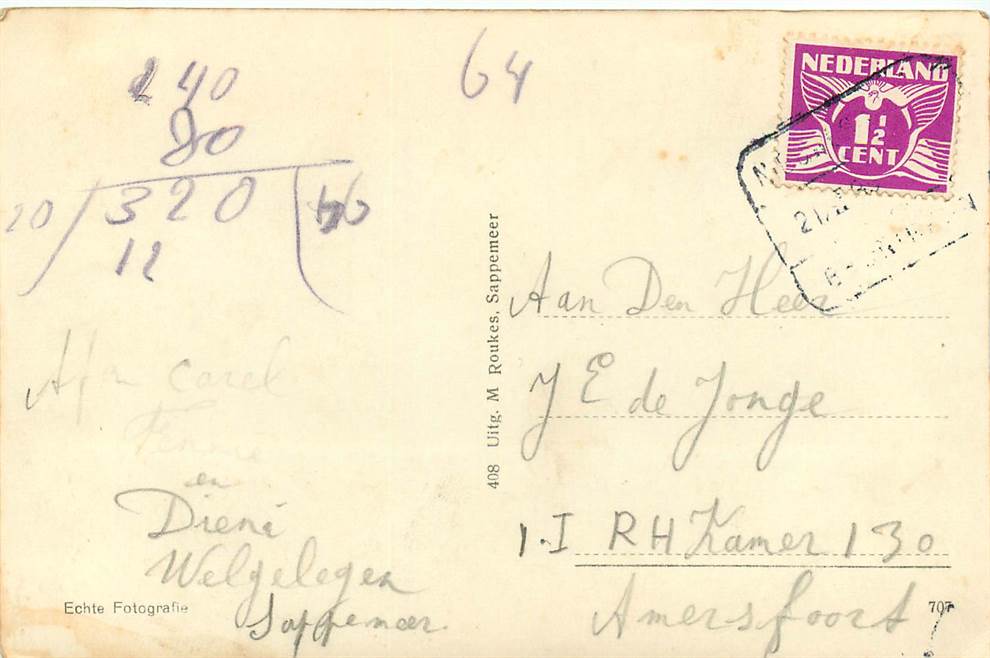 240
80
20 320
12
64
NEDERLAND
1½
CENT
Aan Den Heer
J E de Jonge
1-I RH Kamer 130
Amersfoort
408 Uitg. M Roukes, Sappemeer
Afn Carel
en
Diena
Welgelegen
Sappemeer.
Echte Fotografie
707